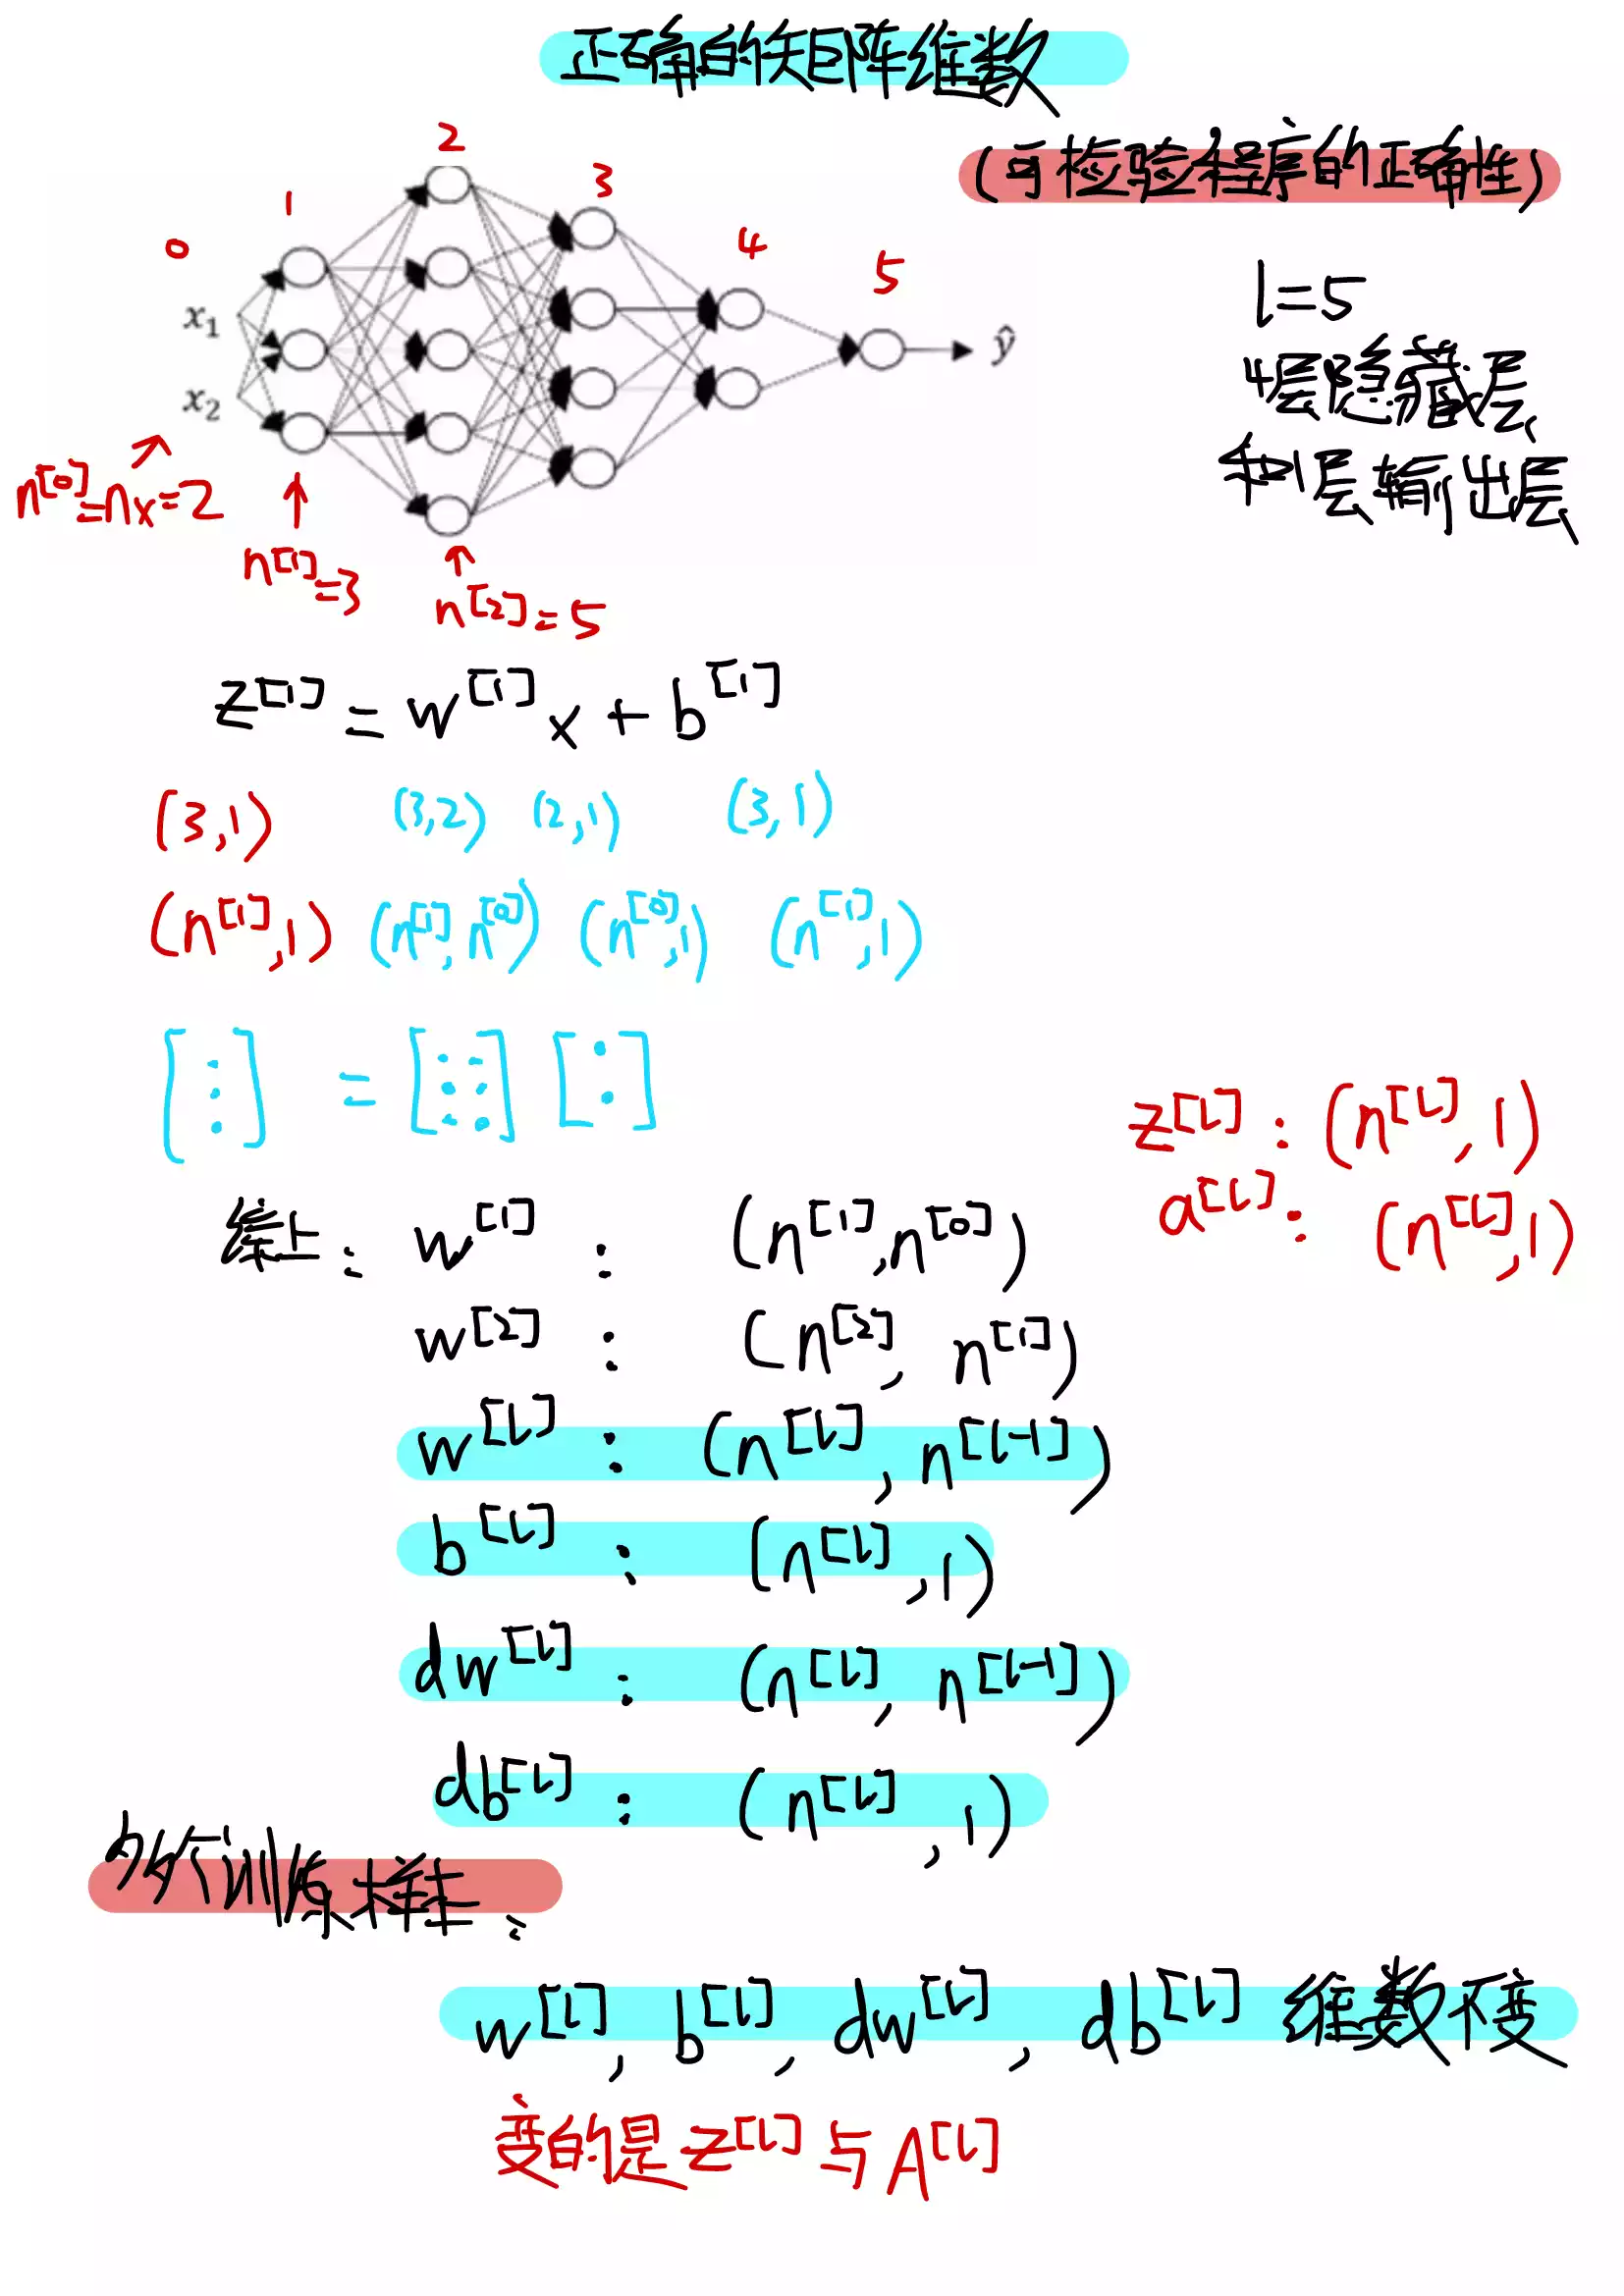 正确的矩阵维数
(可检验程序的正确性)
0 1 2 3 4 5
x₁
x₂
ŷ
l=5
4层隐藏层
和1层输出层
n^[0]=nx=2
n^[1]=3
n^[2]=5
z^[1] = w^[1] x + b^[1]
(3,1) (3,2) (2,1) (3,1)
(n^[1],1) (n^[1],n^[0]) (n^[0],1) (n^[1],1)
[⋮] = [⋮⋮] [:]
z^[l]: (n^[l],1)
a^[l]: (n^[l],1)
综上: w^[1] : (n^[1],n^[0])
w^[2] : (n^[2], n^[1])
w^[l] : (n^[l], n^[l-1])
b^[l] : (n^[l],1)
dw^[l] : (n^[l], n^[l-1])
db^[l] : (n^[l],1)
多个训练样本:
w^[l], b^[l], dw^[l], db^[l] 维数不变
变的是 z^[l] 与 A^[l]